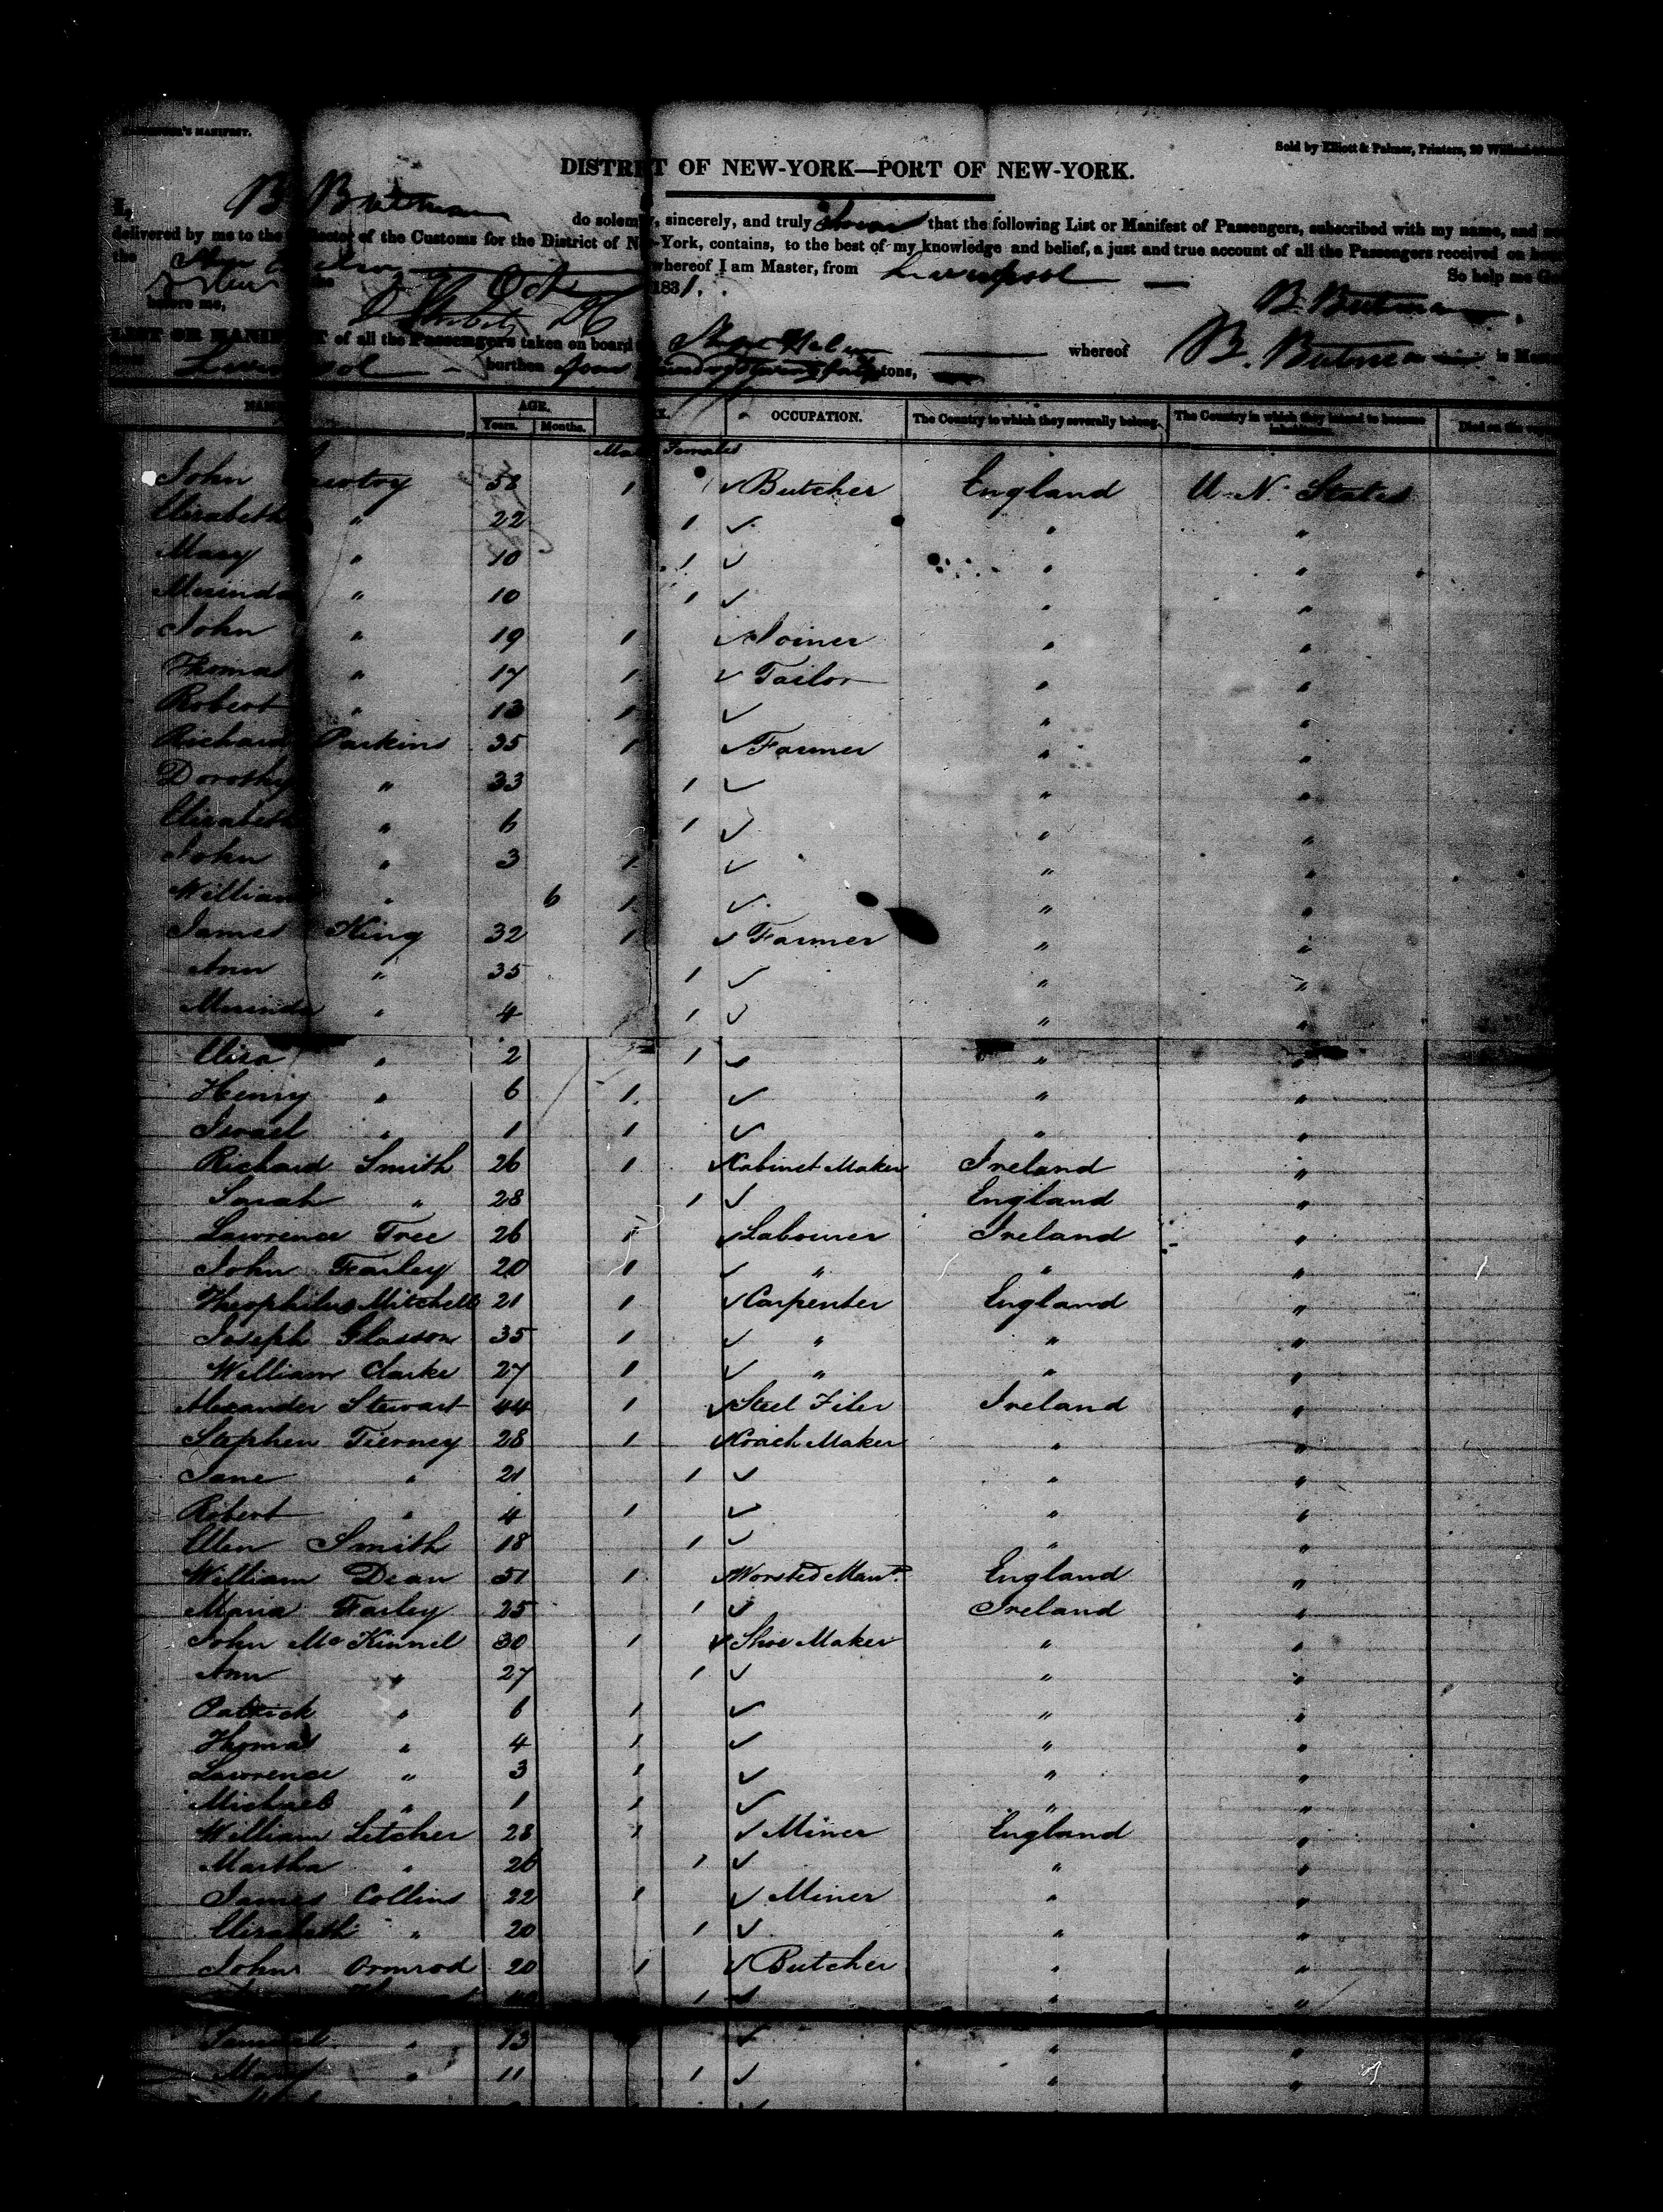 PASSENGER'S MANIFEST.
Sold by Elliott & Palmer, Printers, 20 William
DISTRICT OF NEW-YORK—PORT OF NEW-YORK.
I, B do solemnly, sincerely, and truly swear that the following List or Manifest of Passengers, subscribed with my name, and
delivered by me to the Collector of the Customs for the District of New-York, contains, to the best of my knowledge and belief, a just and true account of all the Passengers received on board
the Ship whereof I am Master, from Liverpool
So help me God
the Oct 1831.
before me,
LIST OR MANIFEST of all the Passengers taken on board Ship whereof B. is Master
from Liverpool burthen four hundred tons,
NAMES AGE. SEX. OCCUPATION. The Country to which they severally belong. The Country in which they intend to become inhabitants. Died on the voyage
Years. Months.
Male Females
John 58 1 Butcher England U. N. States
Elizabeth " 22 1 ✓ " "
Mary " 10 1 ✓ " "
Merinda " 10 1 ✓ " "
John " 19 1 ✓ Joiner " "
Thomas " 17 1 ✓ Tailor " "
Robert " 13 1 ✓ " "
Richard Parkins 35 1 ✓ Farmer " "
Dorothy " 33 1 ✓ " "
Elizabeth " 6 1 ✓ " "
John " 3 1 ✓ " "
William " 6 1 ✓ " "
James King 32 1 ✓ Farmer " "
Ann " 35 1 ✓ " "
Merinda " 4 1 ✓ " "
Eliza " 2 1 ✓ " "
Henry " 6 1 ✓ " "
Israel " 1 1 ✓ " "
Richard Smith 26 1 ✓ Cabinet Maker Ireland "
Sarah " 28 1 ✓ England "
Lawrence Tree 26 1 ✓ Labourer Ireland "
John Farley 20 1 ✓ " " "
Theophilus Mitchell 21 1 ✓ Carpenter England "
Joseph Glasson 35 1 ✓ " " "
William Clarke 27 1 ✓ " " "
Alexander Stewart 44 1 ✓ Steel Filer Ireland "
Stephen Tierney 28 1 ✓ Coach Maker " "
Jane " 21 1 ✓ " "
Robert " 4 1 ✓ " "
Ellen Smith 18 1 ✓ " "
William Dean 51 1 ✓ Worsted Man England "
Maria Farley 25 1 ✓ Ireland "
John McKinnel 30 1 ✓ Shoe Maker " "
Ann " 27 1 ✓ " "
Patrick " 6 1 ✓ " "
Thomas " 4 1 ✓ " "
Lawrence " 3 1 ✓ " "
Michael " 1 1 ✓ " "
William Letcher 28 1 ✓ Miner England "
Martha " 26 1 ✓ " "
James Collins 22 1 ✓ Miner " "
Elizabeth " 20 1 ✓ " "
John Ormrod 20 1 ✓ Butcher " "
1 ✓ " "
Samuel " 13 ✓ " "
Mary " 11 1 ✓ " "